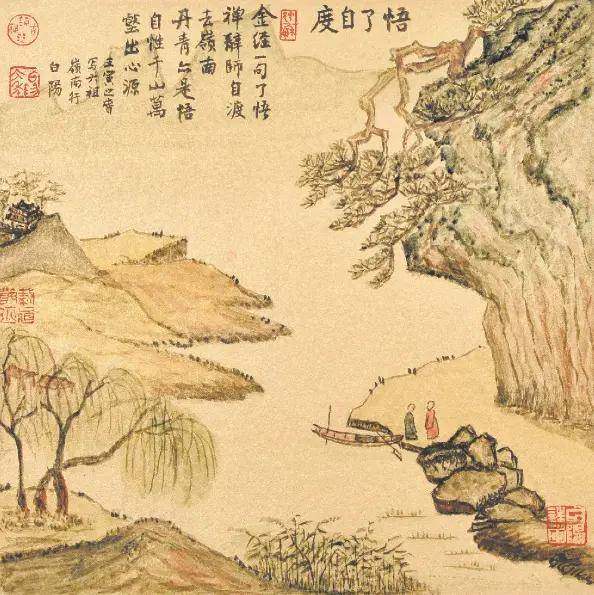 悟了自度
金經一句了悟
禪辭師自渡
去嶺南
丹青亦是悟
自性千山萬
壑出心源
壬寅之春
写六祖
嶺南行
白陽